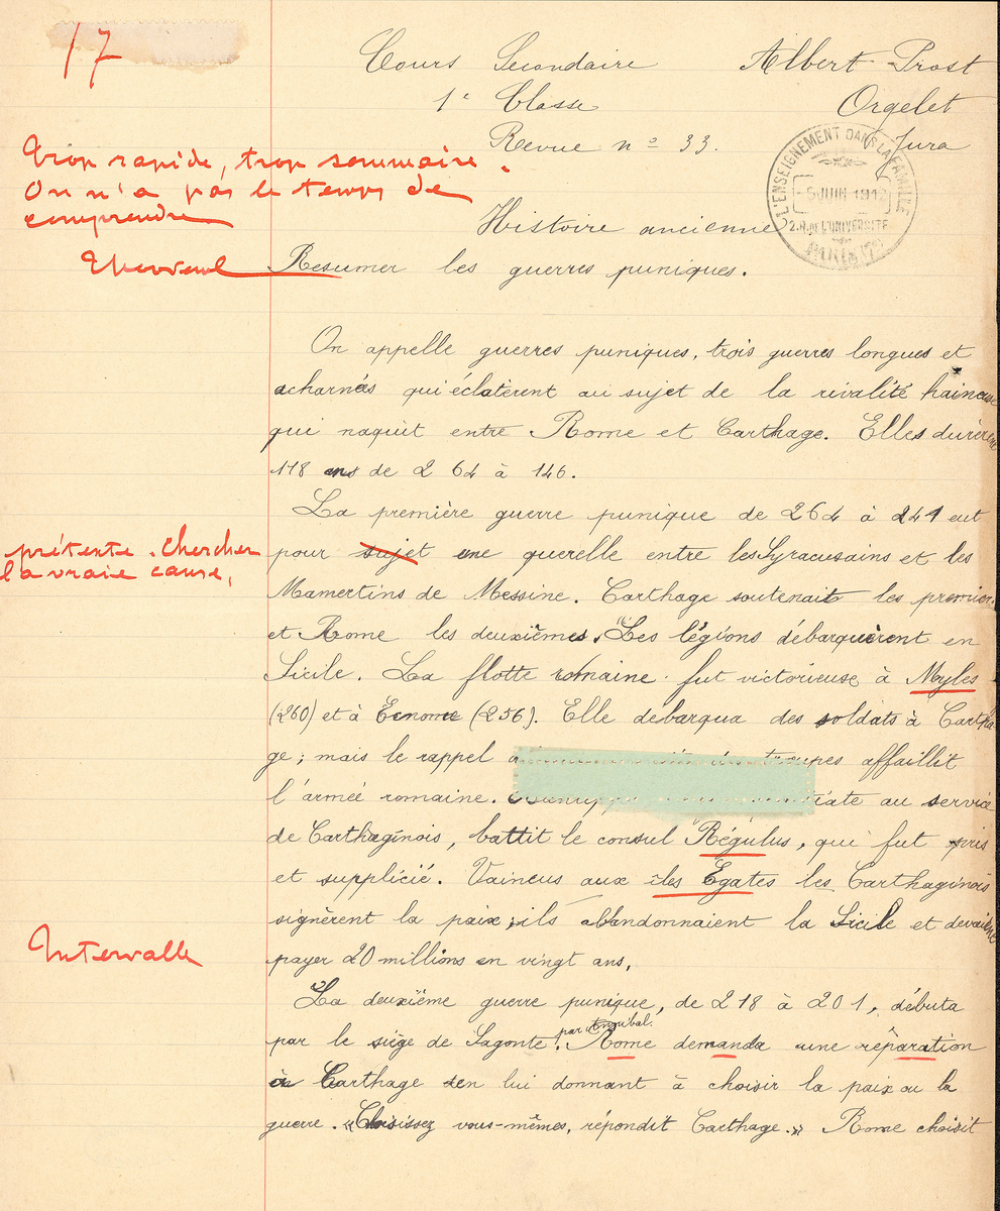 17
Cours Secondaire Albert Prost
1e Classe Orgelet
Revue no 33. Jura
L'ENSEIGNEMENT DANS LA FAMILLE
5 JUIN 191
2.R.DE L'UNIVERSITE
PARIS
Trop rapide, trop sommaire.
On n'a pas le temps de
comprendre
Histoire ancienne
Resumer les guerres puniques.
On appelle guerres puniques, trois guerres longues et
acharnées qui éclatèrent au sujet de la rivalité haineuse
qui naquit entre Rome et Carthage. Elles durèrent
118 ans de 264 à 146.
La première guerre punique de 264 à 241 eut
prétexte. Chercher
la vraie cause,
pour sujet une querelle entre les Syracusains et les
Mamertins de Messine. Carthage soutenait les premiers
et Rome les deuxièmes. Les légions débarquèrent en
Sicile. La flotte romaine fut victorieuse à Myles
(260) et à Ecnome (256). Elle debarqua des soldats à Cartha
ge ; mais le rappel troupes affaillit
l'armée romaine. au service
de Carthaginois, battit le consul Régulus, qui fut pris
et supplicié. Vaincus aux îles Egates les Carthaginois
signèrent la paix ; ils abandonnaient la Sicile et devaient
Intervalle
payer 20 millions en vingt ans,
La deuxième guerre punique, de 218 à 201, débuta
par le siège de Sagonte par Annibal. Rome demanda une réparation
à Carthage en lui donnant à choisir la paix ou la
guerre. « Choisissez vous-mêmes, répondit Carthage. » Rome choisit